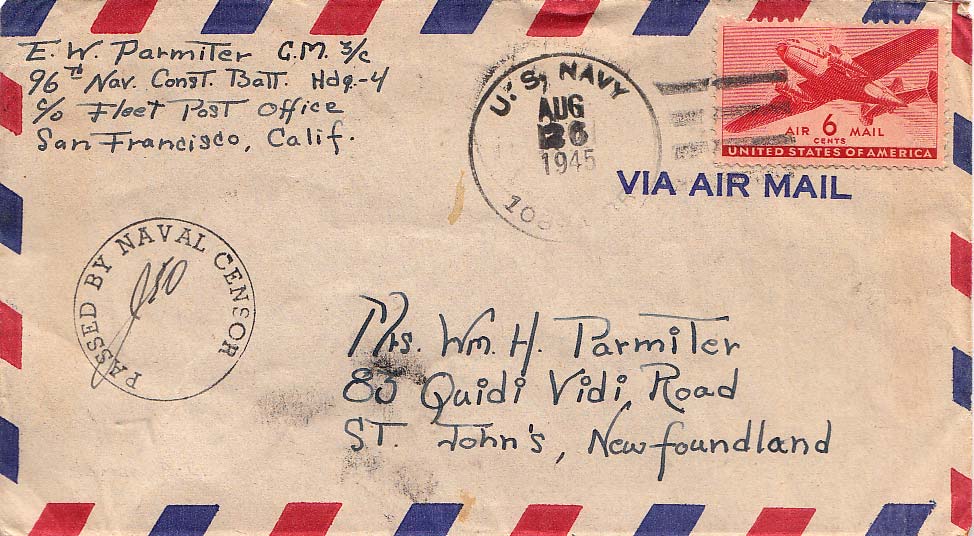 E. W. Parmiter C.M. 3/c
96th Nav. Const. Batt. Hdq.-4
c/o Fleet Post Office
San Francisco, Calif.
U.S. NAVY
AUG
26
1945
AIR 6 MAIL
CENTS
UNITED STATES OF AMERICA
VIA AIR MAIL
PASSED BY NAVAL CENSOR
Mrs. Wm. H. Parmiter
83 Quidi Vidi Road
St. John's, Newfoundland